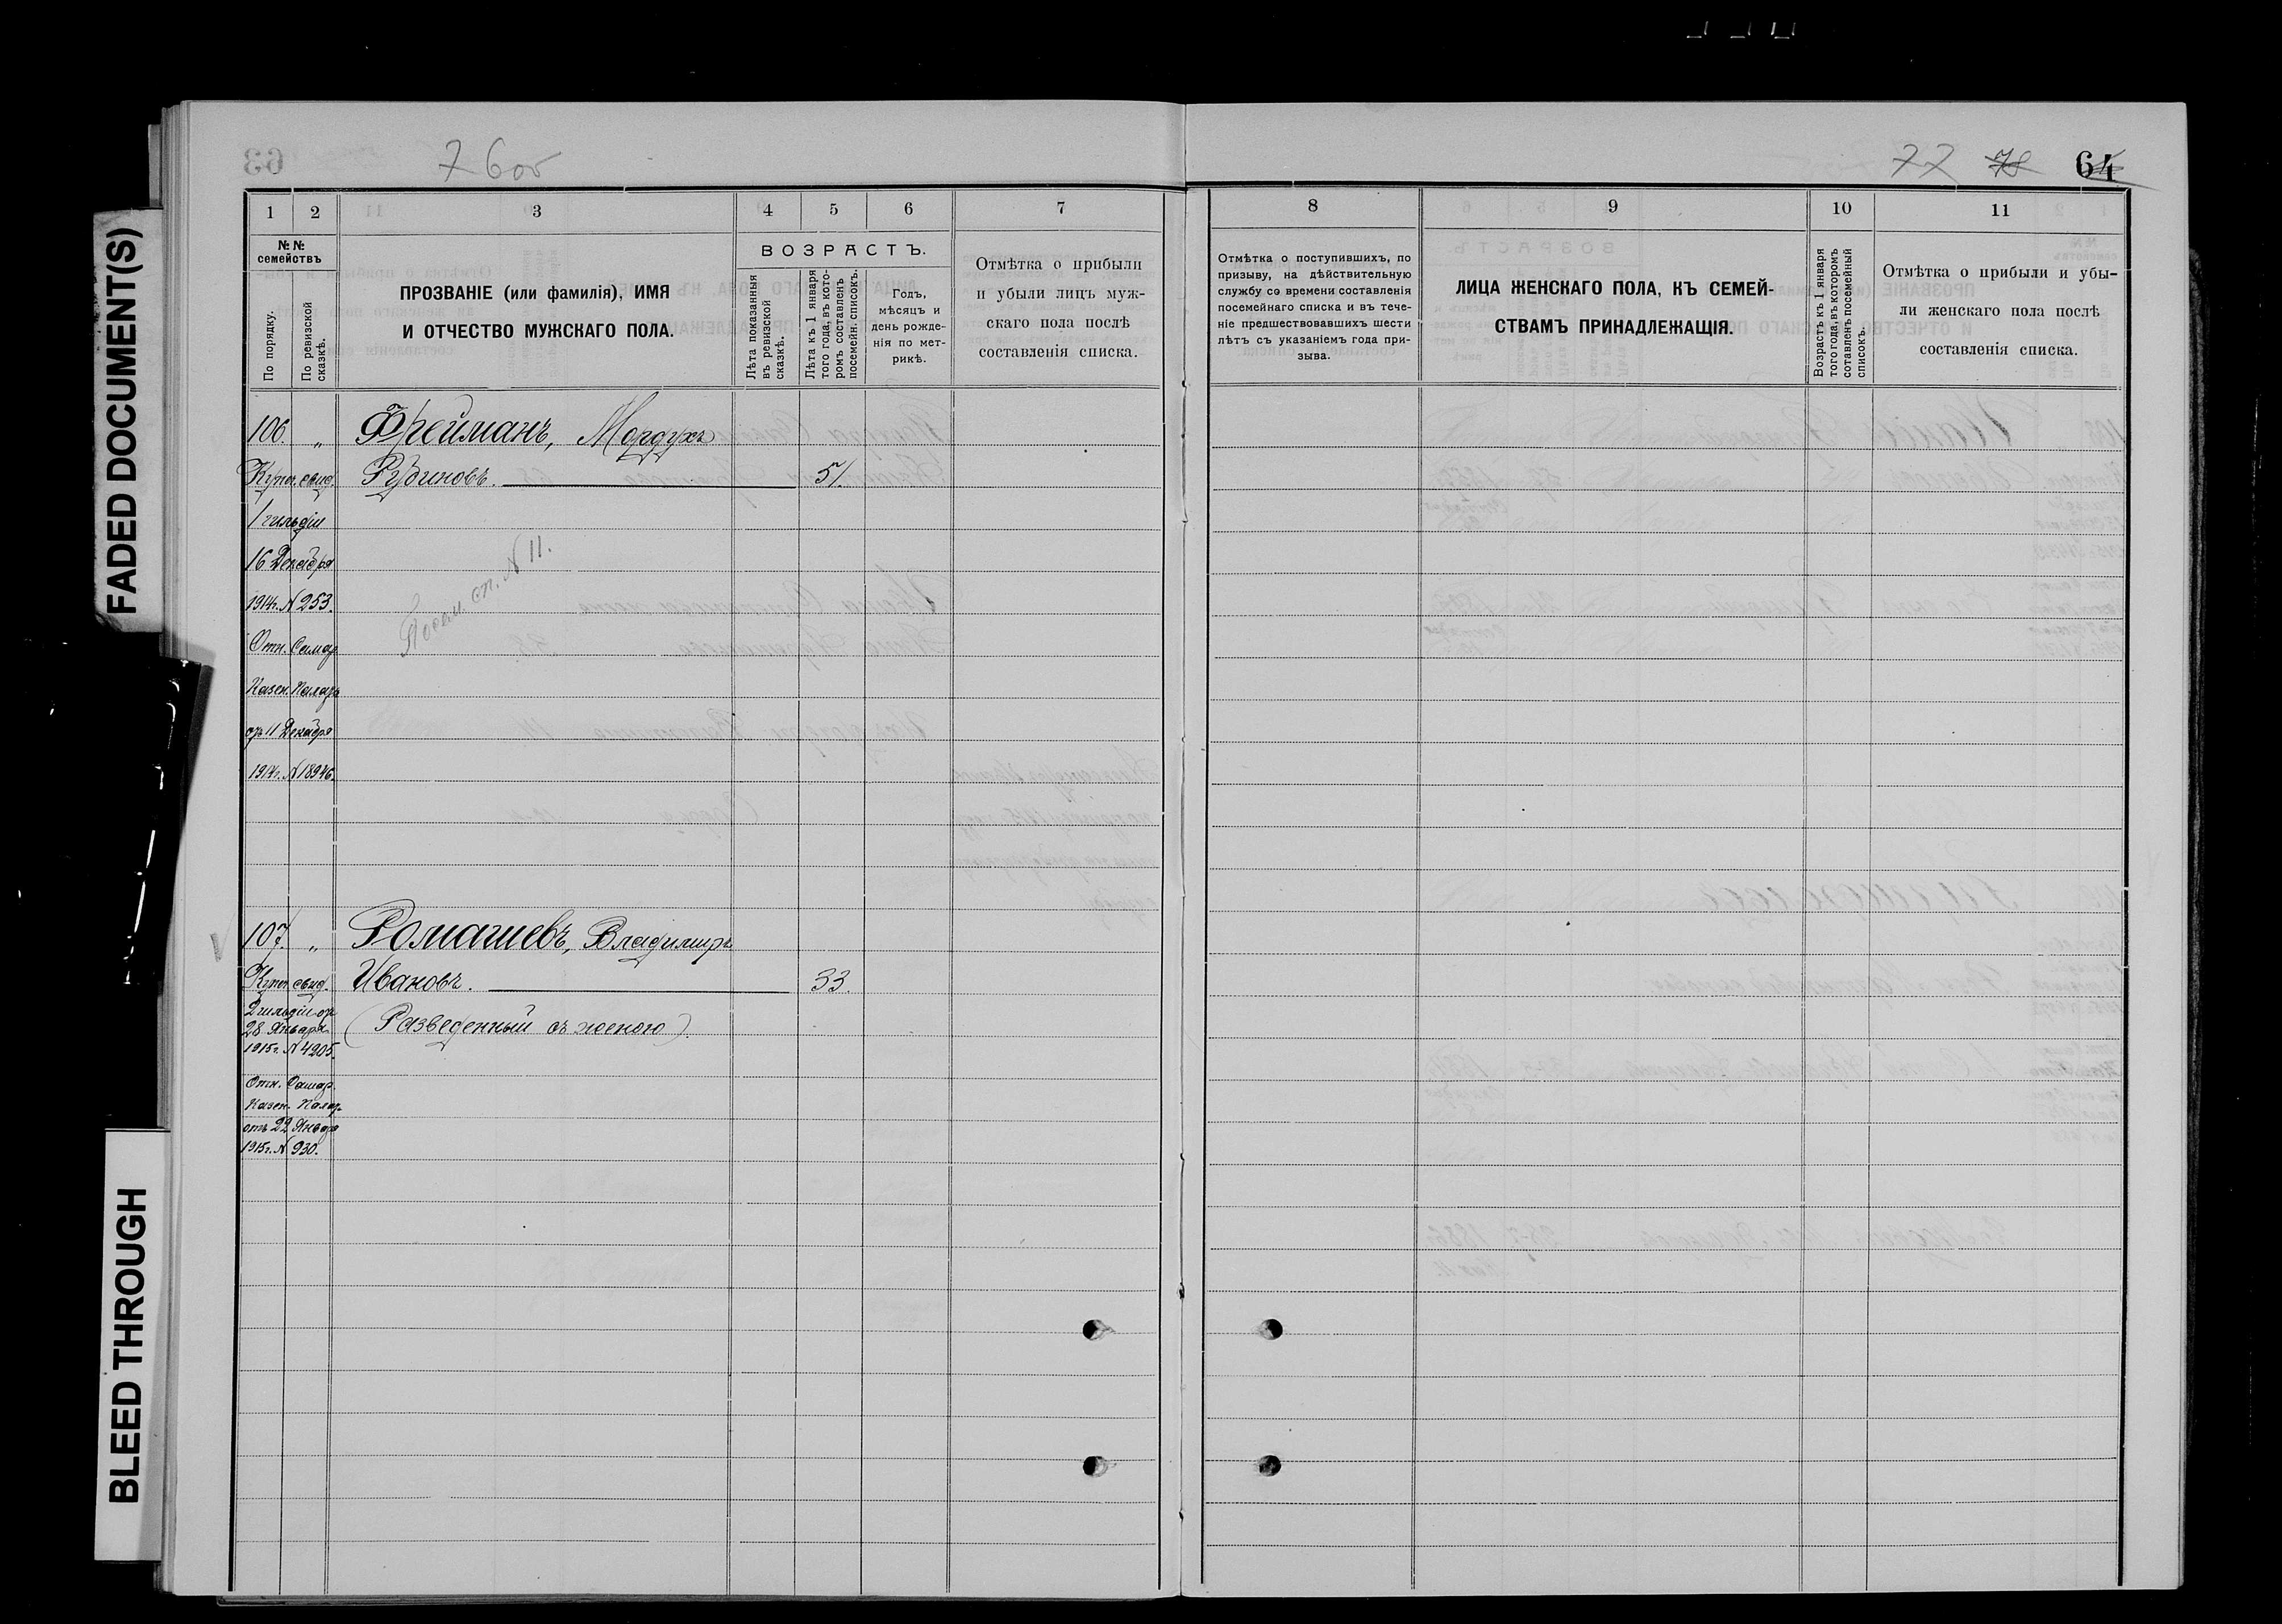 FADED DOCUMENT(S)
BLEED THROUGH
63
76об
77 78 64
1 2 3 4 5 6 7
8 9 10 11
№ №
семействъ
По порядку.
По ревизской
сказкѣ.
ПРОЗВАНІЕ (или фамилія), ИМЯ
И ОТЧЕСТВО МУЖСКАГО ПОЛА.
ВОЗРАСТЪ.
Лѣта показанныя
въ ревизской
сказкѣ.
Лѣта къ 1 января
того года, въ кото-
ромъ составленъ
посемейн. списокъ.
Годъ,
мѣсяцъ и
день рожде-
нія по мет-
рикѣ.
Отмѣтка о прибыли
и убыли лицъ муж-
скаго пола послѣ
составленія списка.
Отмѣтка о поступившихъ, по
призыву, на дѣйствительную
службу со времени составленія
посемейнаго списка и въ тече-
ніе предшествовавшихъ шести
лѣтъ съ указаніемъ года при-
зыва.
ЛИЦА ЖЕНСКАГО ПОЛА, КЪ СЕМЕЙ-
СТВАМЪ ПРИНАДЛЕЖАЩІЯ.
Возрастъ къ 1 января
того года, въ которомъ
составленъ посемейный
списокъ.
Отмѣтка о прибыли и убы-
ли женскаго пола послѣ
составленія списка.
106. „ Фрейманъ, Мордухъ
Купч. свид. Рубиновъ. 51.
1 гильдіи
16 Декабря
1914г. N 253.
Отн. Самар.
Казен. Палаты
отъ 11 Декабря
1914г. N 18946.
Посем. сп. N 11.
107. „ Ромашевъ, Владимиръ
Купч. свид. Ивановъ. 33.
2 гильдіи отъ
28 Января (Разведенный съ женою).
1915г. N 4205.
Отн. Самар.
Казен. Палат.
отъ 22 Января
1915г. N 930.